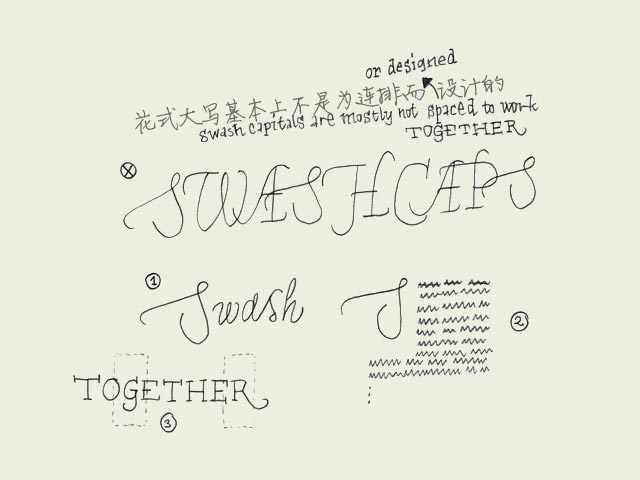 or designed
花式大写基本上不是为连排而设计的
swash capitals are mostly not spaced to work
TOGETHER
ⓧ
SWASH CAPS
①
Swash
S
②
TOGETHER
③